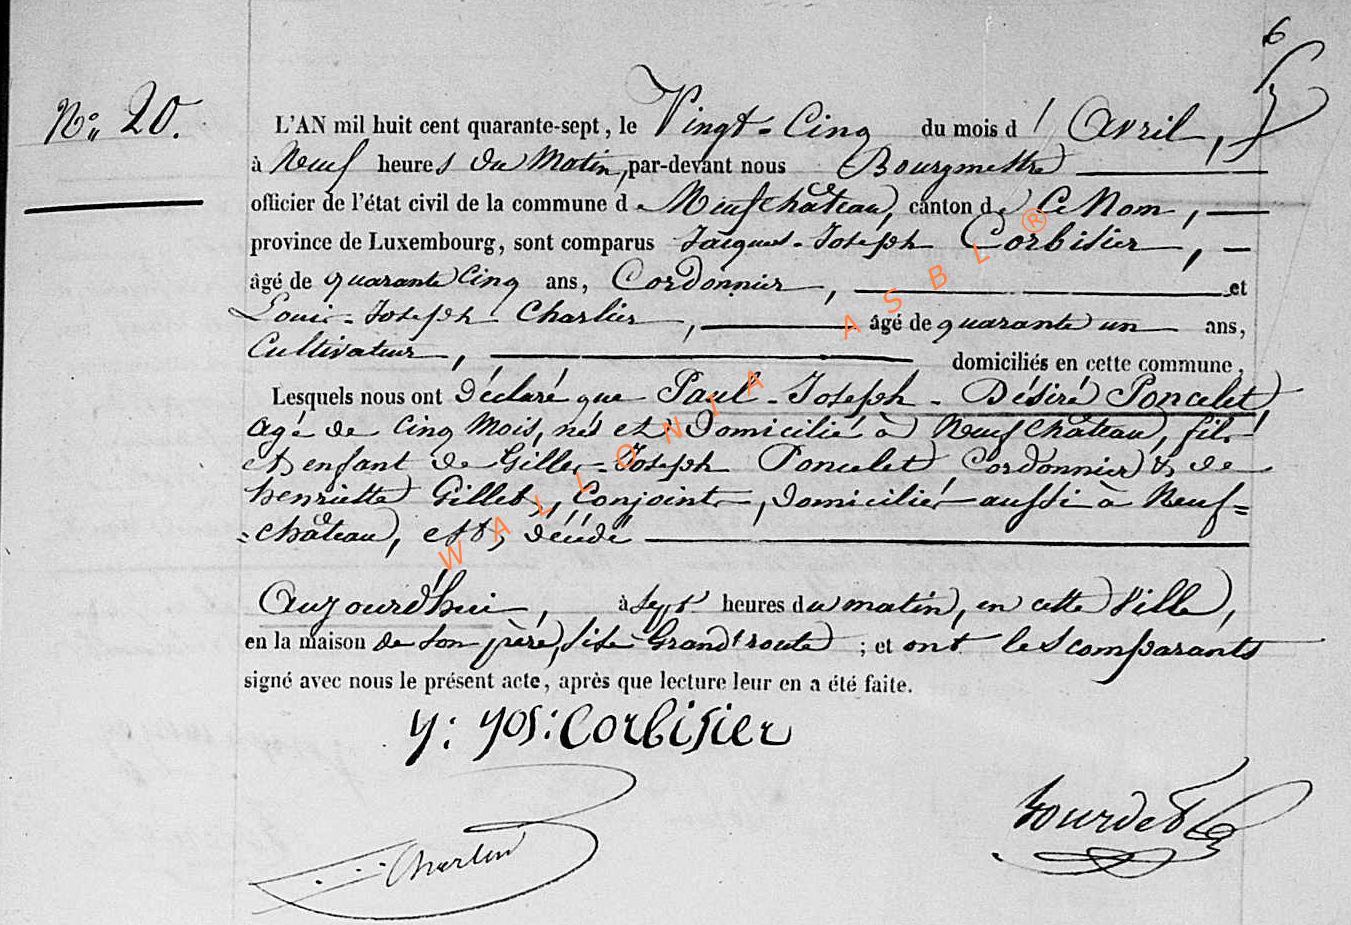 6
N° 20.
L'AN mil huit cent quarante-sept, le Vingt-Cinq du mois d'Avril,
à Neuf heures du Matin, par-devant nous Bourgmestre
officier de l'état civil de la commune de Neufchâteau, canton de Ce Nom,
province de Luxembourg, sont comparus Jacques-Joseph Corbisier,
âgé de quarante Cinq ans, Cordonnier, et
Louis-Joseph Charlier, âgé de quarante un ans,
Cultivateur, domiciliés en cette commune,
Lesquels nous ont déclaré que Paul-Joseph-Désiré Poncelet,
Agé de Cinq Mois, né et Domicilié à Neufchâteau, fils
et enfant de Gilles-Joseph Poncelet Cordonnier & de
henriette Gillet, Conjoints, domiciliés aussi à Neuf=
=château, est décédé
Aujourd'hui, à Sept heures du matin, en cette Ville,
en la maison de son père, sise Grand'route ; et ont les comparants
signé avec nous le présent acte, après que lecture leur en a été faite.
y: yos: Corbisier
Charlier
Bourdet
WALLONIA ASBL ®